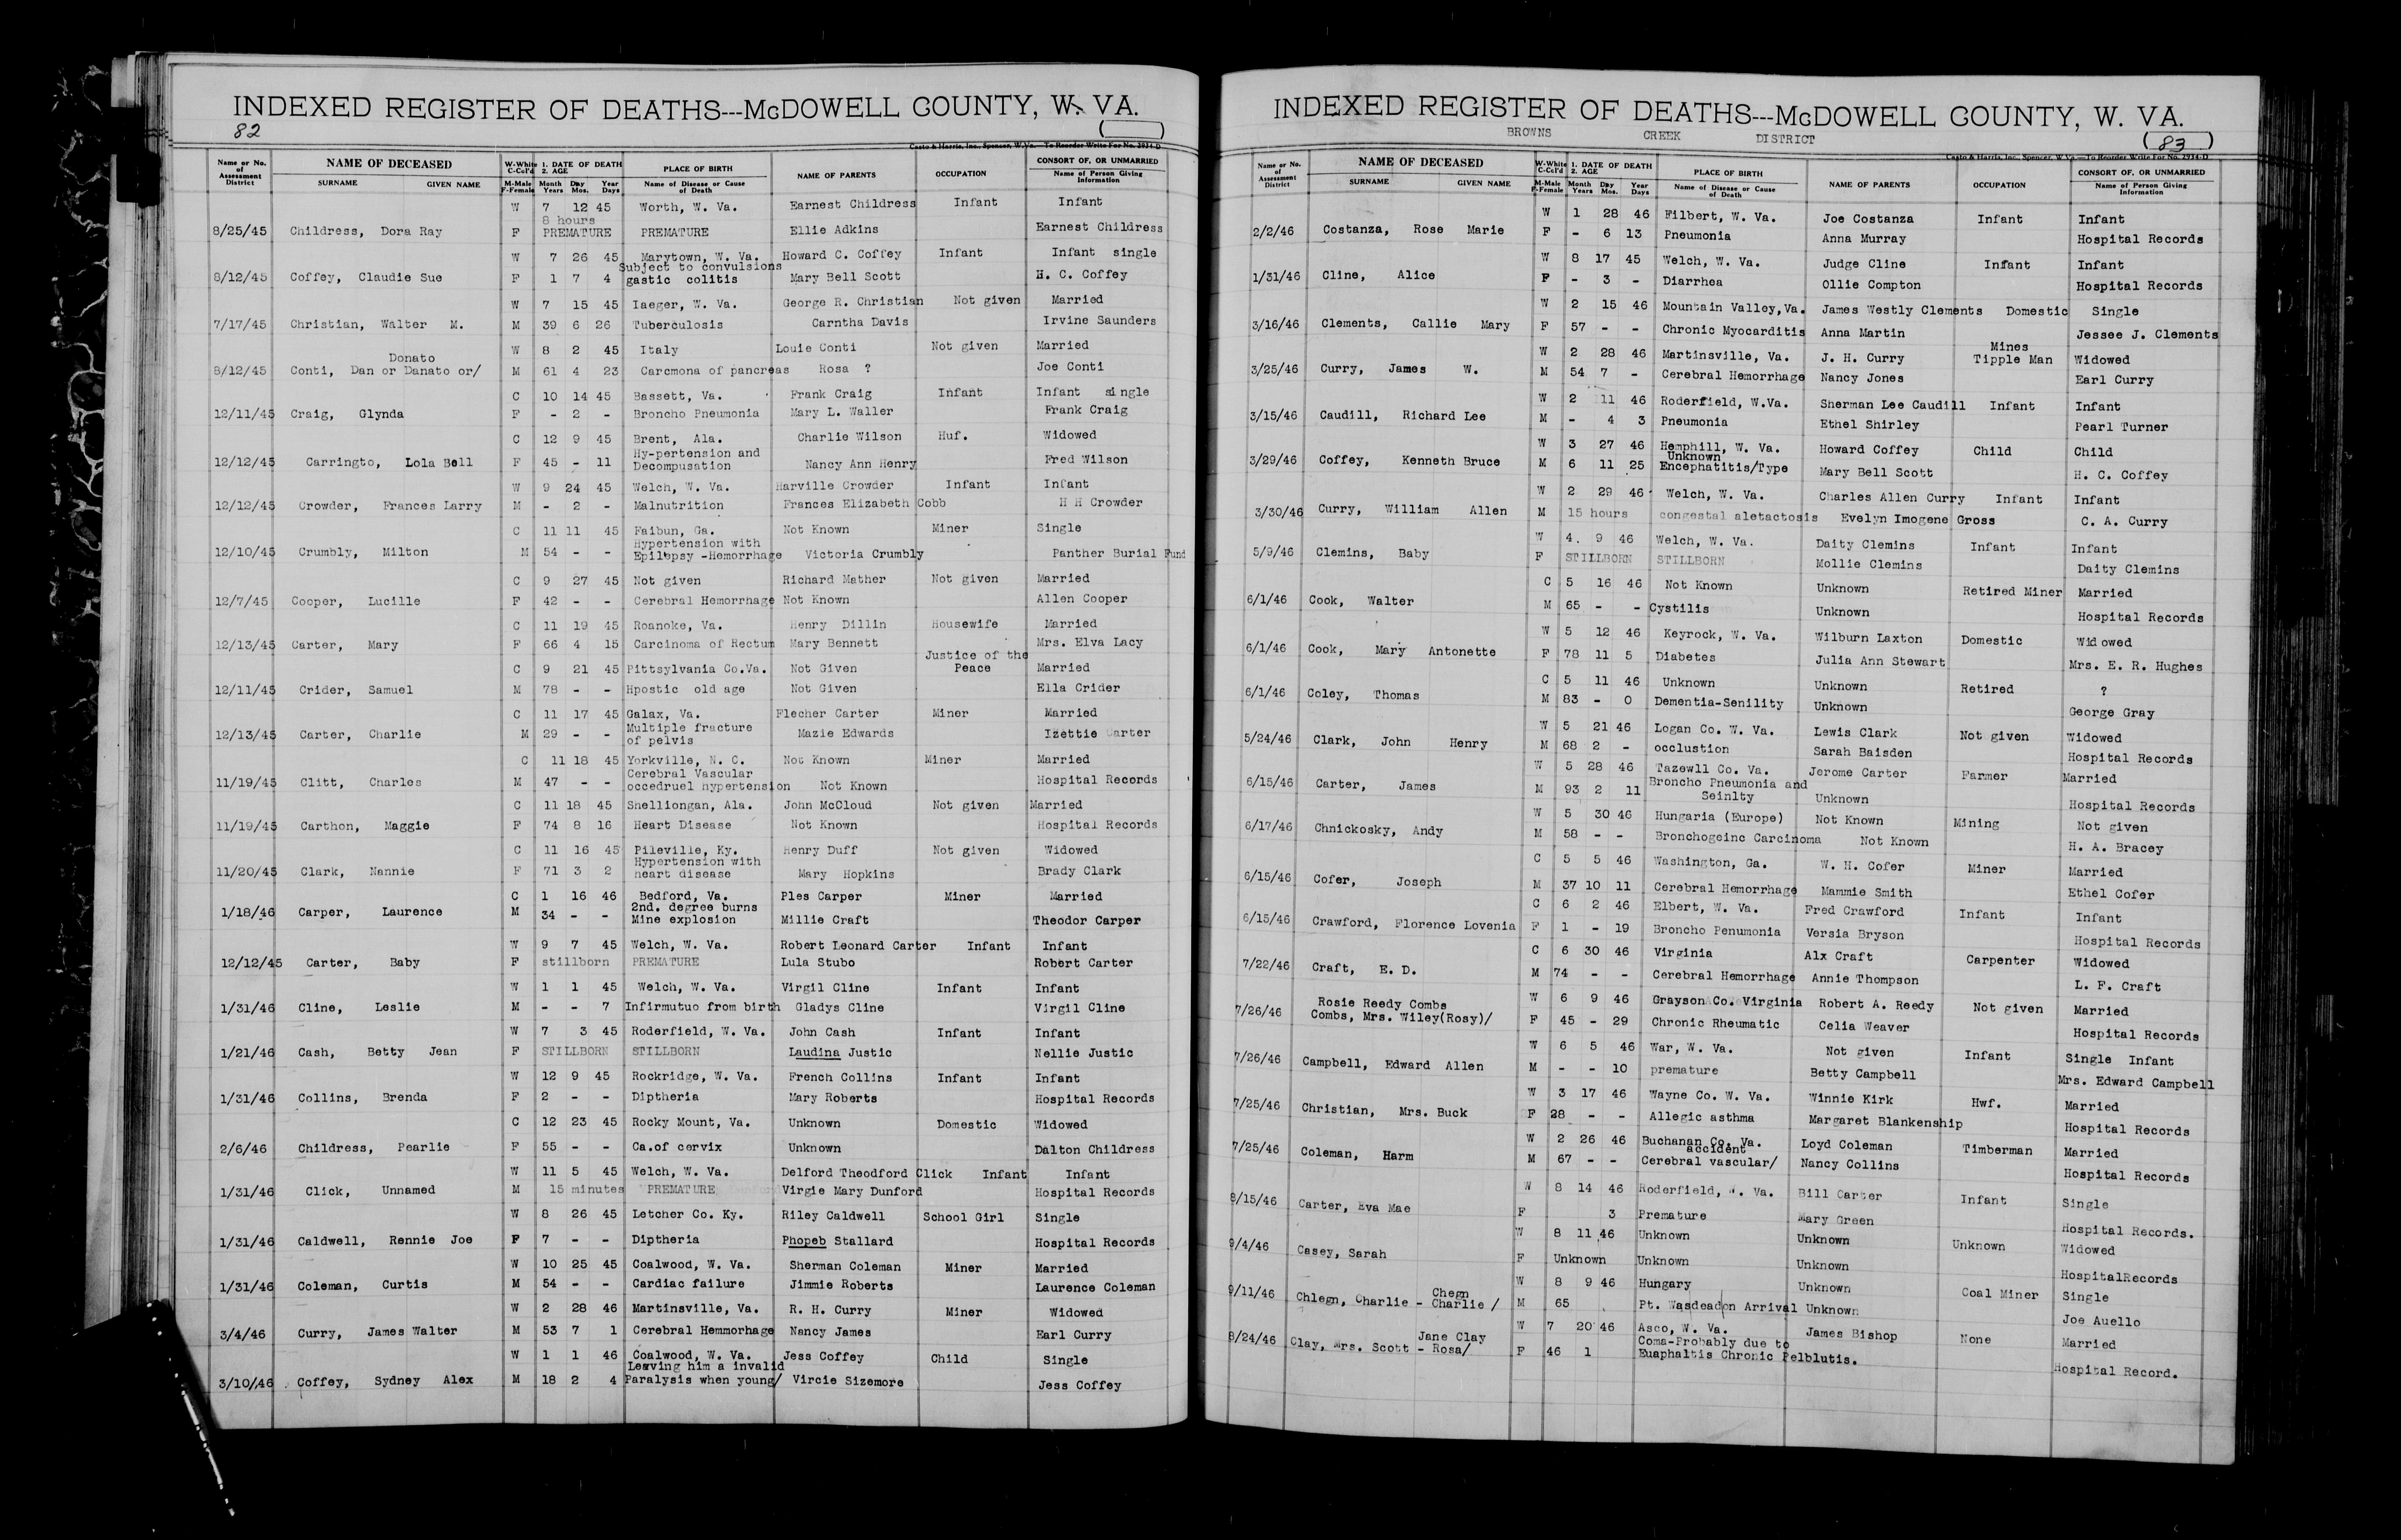 INDEXED REGISTER OF DEATHS---McDOWELL COUNTY, W. VA.
82
Casto & Harris, Inc., Spencer, W. Va.—To Reorder Write For No. 2934-D
Name or No. of Assessment District NAME OF DECEASED SURNAME GIVEN NAME W-White C-Col'd M-Male F-Female 1. DATE OF DEATH 2. AGE Month Day Year Years Mos. Days PLACE OF BIRTH Name of Disease or Cause of Death NAME OF PARENTS OCCUPATION CONSORT OF, OR UNMARRIED Name of Person Giving Information
W 7 12 45 Worth, W. Va. Earnest Childress Infant Infant
8 hours
8/25/45 Childress, Dora Ray F PREMATURE PREMATURE Ellie Adkins Earnest Childress
W 7 26 45 Marytown, W. Va. Howard C. Coffey Infant Infant single
Subject to convulsions
8/12/45 Coffey, Claudie Sue F 1 7 4 gastic colitis Mary Bell Scott H. C. Coffey
W 7 15 45 Iaeger, W. Va. George R. Christian Not given Married
7/17/45 Christian, Walter M. M 39 6 26 Tuberculosis Carntha Davis Irvine Saunders
W 8 2 45 Italy Louie Conti Not given Married
Donato
8/12/45 Conti, Dan or Danato or/ M 61 4 23 Carcmona of pancreas Rosa ? Joe Conti
C 10 14 45 Bassett, Va. Frank Craig Infant Infant single
12/11/45 Craig, Glynda F - 2 - Broncho Pneumonia Mary L. Waller Frank Craig
C 12 9 45 Brent, Ala. Charlie Wilson Huf. Widowed
Hy-pertension and
12/12/45 Carringto, Lola Bell F 45 - 11 Decompusation Nancy Ann Henry Fred Wilson
W 9 24 45 Welch, W. Va. Harville Crowder Infant Infant
12/12/45 Crowder, Frances Larry M - 2 - Malnutrition Frances Elizabeth Cobb H H Crowder
C 11 11 45 Faibun, Ga. Not Known Miner Single
Hypertension with
12/10/45 Crumbly, Milton M 54 - - Epilepsy -Hemorrhage Victoria Crumbly Panther Burial Fund
C 9 27 45 Not given Richard Mather Not given Married
12/7/45 Cooper, Lucille F 42 - - Cerebral Hemorrhage Not Known Allen Cooper
C 11 19 45 Roanoke, Va. Henry Dillin Housewife Married
12/13/45 Carter, Mary F 66 4 15 Carcinoma of Rectum Mary Bennett Mrs. Elva Lacy
Justice of the
C 9 21 45 Pittsylvania Co.Va. Not Given Peace Married
12/11/45 Crider, Samuel M 78 - - Hpostic old age Not Given Ella Crider
C 11 17 45 Galax, Va. Flecher Carter Miner Married
Multiple fracture
12/13/45 Carter, Charlie M 29 - - of pelvis Mazie Edwards Izettie Carter
C 11 18 45 Yorkville, N. C. Not Known Miner Married
Cerebral Vascular
11/19/45 Clitt, Charles M 47 - - occedruel hypertension Not Known Hospital Records
C 11 18 45 Snelliongan, Ala. John McCloud Not given Married
11/19/45 Carthon, Maggie F 74 8 16 Heart Disease Not Known Hospital Records
C 11 16 45 Pileville, Ky. Henry Duff Not given Widowed
Hypertension with
11/20/45 Clark, Nannie F 71 3 2 heart disease Mary Hopkins Brady Clark
C 1 16 46 Bedford, Va. Ples Carper Miner Married
2nd. degree burns
1/18/46 Carper, Laurence M 34 - - Mine explosion Millie Craft Theodor Carper
W 9 7 45 Welch, W. Va. Robert Leonard Carter Infant Infant
12/12/45 Carter, Baby F stillborn PREMATURE Lula Stubo Robert Carter
W 1 1 45 Welch, W. Va. Virgil Cline Infant Infant
1/31/46 Cline, Leslie M - - 7 Infirmutuo from birth Gladys Cline Virgil Cline
W 7 3 45 Roderfield, W. Va. John Cash Infant Infant
1/21/46 Cash, Betty Jean F STILLBORN STILLBORN Laudina Justic Nellie Justic
W 12 9 45 Rockridge, W. Va. French Collins Infant Infant
1/31/46 Collins, Brenda F 2 - - Diptheria Mary Roberts Hospital Records
C 12 23 45 Rocky Mount, Va. Unknown Domestic Widowed
2/6/46 Childress, Pearlie F 55 - - Ca.of cervix Unknown Dalton Childress
W 11 5 45 Welch, W. Va. Delford Theodford Click Infant Infant
1/31/46 Click, Unnamed M 15 minutes PREMATURE Virgie Mary Dunford Hospital Records
W 8 26 45 Letcher Co. Ky. Riley Caldwell School Girl Single
1/31/46 Caldwell, Rennie Joe F 7 - - Diptheria Phopeb Stallard Hospital Records
W 10 25 45 Coalwood, W. Va. Sherman Coleman Miner Married
1/31/46 Coleman, Curtis M 54 - - Cardiac failure Jimmie Roberts Laurence Coleman
W 2 28 46 Martinsville, Va. R. H. Curry Miner Widowed
3/4/46 Curry, James Walter M 53 7 1 Cerebral Hemmorhage Nancy James Earl Curry
W 1 1 46 Coalwood, W. Va. Jess Coffey Child Single
Leaving him a invalid
3/10/46 Coffey, Sydney Alex M 18 2 4 Paralysis when young/ Vircie Sizemore Jess Coffey
INDEXED REGISTER OF DEATHS---McDOWELL COUNTY, W. VA.
BROWNS CREEK DISTRICT
(83)
Casto & Harris, Inc., Spencer, W. Va.—To Reorder Write For No. 2934-D
Name or No. of Assessment District NAME OF DECEASED SURNAME GIVEN NAME W-White C-Col'd M-Male F-Female 1. DATE OF DEATH 2. AGE Month Day Year Years Mos. Days PLACE OF BIRTH Name of Disease or Cause of Death NAME OF PARENTS OCCUPATION CONSORT OF, OR UNMARRIED Name of Person Giving Information
W 1 28 46 Filbert, W. Va. Joe Costanza Infant Infant
2/2/46 Costanza, Rose Marie F - 6 13 Pneumonia Anna Murray Hospital Records
W 8 17 45 Welch, W. Va. Judge Cline Infant Infant
1/31/46 Cline, Alice F - 3 - Diarrhea Ollie Compton Hospital Records
W 2 15 46 Mountain Valley,Va. James Westly Clements Domestic Single
3/16/46 Clements, Callie Mary F 57 - - Chronic Myocarditis Anna Martin Jessee J. Clements
Mines
W 2 28 46 Martinsville, Va. J. H. Curry Tipple Man Widowed
3/25/46 Curry, James W. M 54 7 - Cerebral Hemorrhage Nancy Jones Earl Curry
W 2 11 46 Roderfield, W.Va. Sherman Lee Caudill Infant Infant
3/15/46 Caudill, Richard Lee M - 4 3 Pneumonia Ethel Shirley Pearl Turner
W 3 27 46 Hemphill, W. Va. Howard Coffey Child Child
Unknown
3/29/46 Coffey, Kenneth Bruce M 6 11 25 Encephatitis/Type Mary Bell Scott H. C. Coffey
W 2 29 46 Welch, W. Va. Charles Allen Curry Infant Infant
3/30/46 Curry, William Allen M 15 hours congestal aletactosis Evelyn Imogene Gross C. A. Curry
W 4. 9 46 Welch, W. Va. Daity Clemins Infant Infant
5/9/46 Clemins, Baby F STILLBORN STILLBORN Mollie Clemins Daity Clemins
C 5 16 46 Not Known Unknown Retired Miner Married
6/1/46 Cook, Walter M 65 - - Cystilis Unknown Hospital Records
W 5 12 46 Keyrock, W. Va. Wilburn Laxton Domestic Widowed
6/1/46 Cook, Mary Antonette F 78 11 5 Diabetes Julia Ann Stewart Mrs. E. R. Hughes
C 5 11 46 Unknown Unknown Retired ?
6/1/46 Coley, Thomas M 83 - 0 Dementia-Senility Unknown George Gray
W 5 21 46 Logan Co. W. Va. Lewis Clark Not given Widowed
5/24/46 Clark, John Henry M 68 2 - occlustion Sarah Baisden Hospital Records
W 5 28 46 Tazewll Co. Va. Jerome Carter Farmer Married
Broncho Pneumonia and
6/15/46 Carter, James M 93 2 11 Seinlty Unknown Hospital Records
W 5 30 46 Hungaria (Europe) Not Known Mining Not given
6/17/46 Chnickosky, Andy M 58 - - Bronchogeinc Carcinoma Not Known H. A. Bracey
C 5 5 46 Washington, Ga. W. H. Cofer Miner Married
6/15/46 Cofer, Joseph M 37 10 11 Cerebral Hemorrhage Mammie Smith Ethel Cofer
C 6 2 46 Elbert, W. Va. Fred Crawford Infant Infant
6/15/46 Crawford, Florence Lovenia F 1 - 19 Broncho Penumonia Versia Bryson Hospital Records
C 6 30 46 Virginia Alx Craft Carpenter Widowed
7/22/46 Craft, E. D. M 74 - - Cerebral Hemorrhage Annie Thompson L. F. Craft
Rosie Reedy Combs W 6 9 46 Grayson Co. Virginia Robert A. Reedy Not given Married
7/26/46 Combs, Mrs. Wiley(Rosy)/ F 45 - 29 Chronic Rheumatic Celia Weaver Hospital Records
W 6 5 46 War, W. Va. Not given Infant Single Infant
7/26/46 Campbell, Edward Allen M - - 10 premature Betty Campbell Mrs. Edward Campbell
W 3 17 46 Wayne Co. W. Va. Winnie Kirk Hwf. Married
7/25/46 Christian, Mrs. Buck F 28 - - Allegic asthma Margaret Blankenship Hospital Records
W 2 26 46 Buchanan Co. Va. Loyd Coleman Timberman Married
accident
7/25/46 Coleman, Harm M 67 - - Cerebral vascular/ Nancy Collins Hospital Records
W 8 14 46 Roderfield, W. Va. Bill Carter Infant Single
8/15/46 Carter, Eva Mae F 3 Premature Mary Green Hospital Records.
W 8 11 46 Unknown Unknown Unknown Widowed
9/4/46 Casey, Sarah F Unknown Unknown Unknown HospitalRecords
W 8 9 46 Hungary Unknown Coal Miner Single
Chegn
9/11/46 Chlegn, Charlie - Charlie / M 65 Pt. Wasdeadon Arrival Unknown Joe Auello
W 7 20 46 Asco, W. Va. James Bishop None Married
Jane Clay Coma-Probably due to
8/24/46 Clay, Mrs. Scott - Rosa/ F 46 1 Euaphaltis Chronic Pelblutis. Hospital Record.